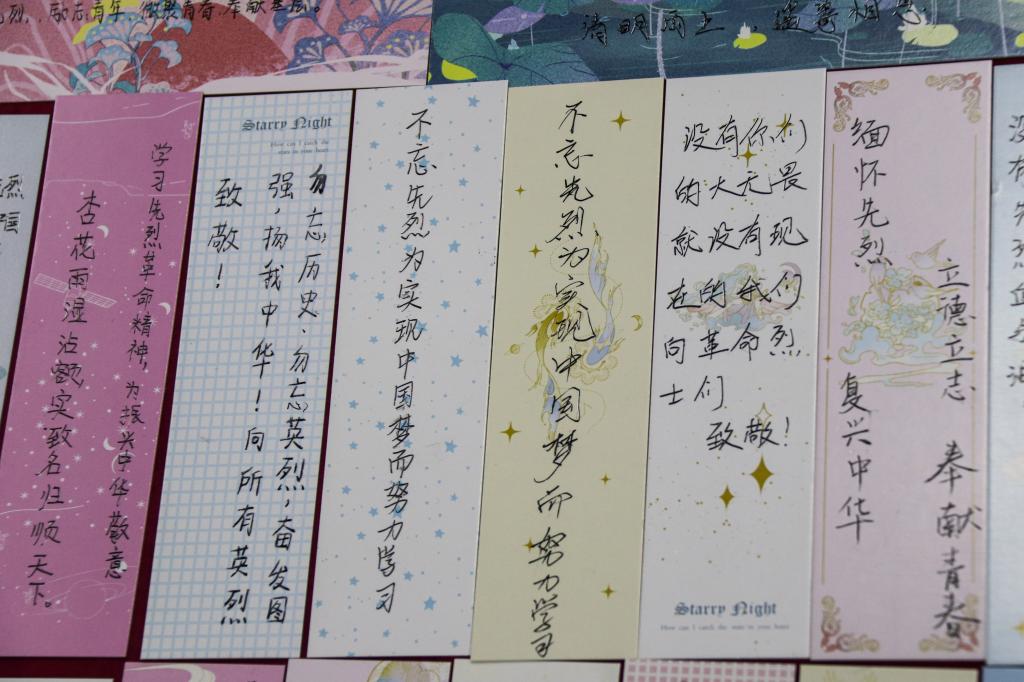 励志青年，做聚青春，奉献基层。
清明雨上，
学习先烈革命精神，为振兴中华敬意
杏花雨湿沾额实致名归顺天下。
Starry Night
How can I catch the
stars in your heart
勿忘历史、勿忘英烈，奋发图
强，扬我中华！向所有英烈
致敬！
不忘先烈为实现中国梦而努力学习
不忘先烈为实现中国梦而努力学习
没有你们
的大无畏
就没有现
在的我们
向革命烈
士们
致敬！
Starry Night
How can I catch the stars in your heart
缅怀先烈
复兴中华
立德立志 奉献青春